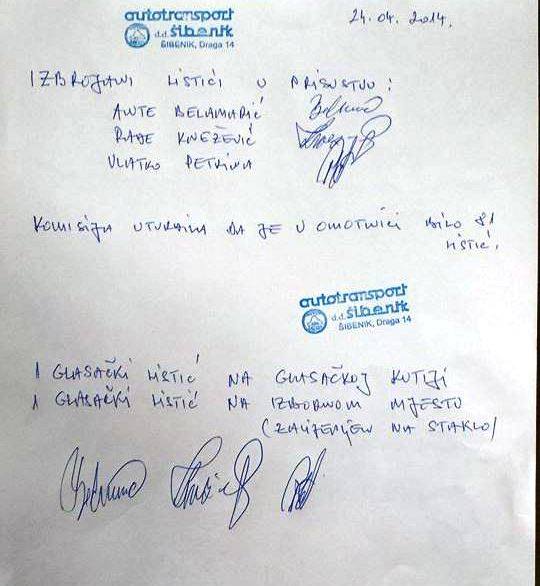 autotransport
d.d. šibenik
ŠIBENIK, Draga 14
24. 04. 2014.
IZBROJANI LISTIĆI U PRISUSTVU:
ANTE BELAMARIĆ
RADE KNEŽEVIĆ
VLATKO PETRINA
KOMISIJA UTVRDILA DA JE U OMOTNICI BILO 81
LISTIĆ.
autotransport
d.d. šibenik
ŠIBENIK, Draga 14
1 GLASAČKI LISTIĆ NA GLASAČKOJ KUTIJI
1 GLASAČKI LISTIĆ NA IZBORNOM MJESTU
(ZALIJEPLJEN NA STAKLO)